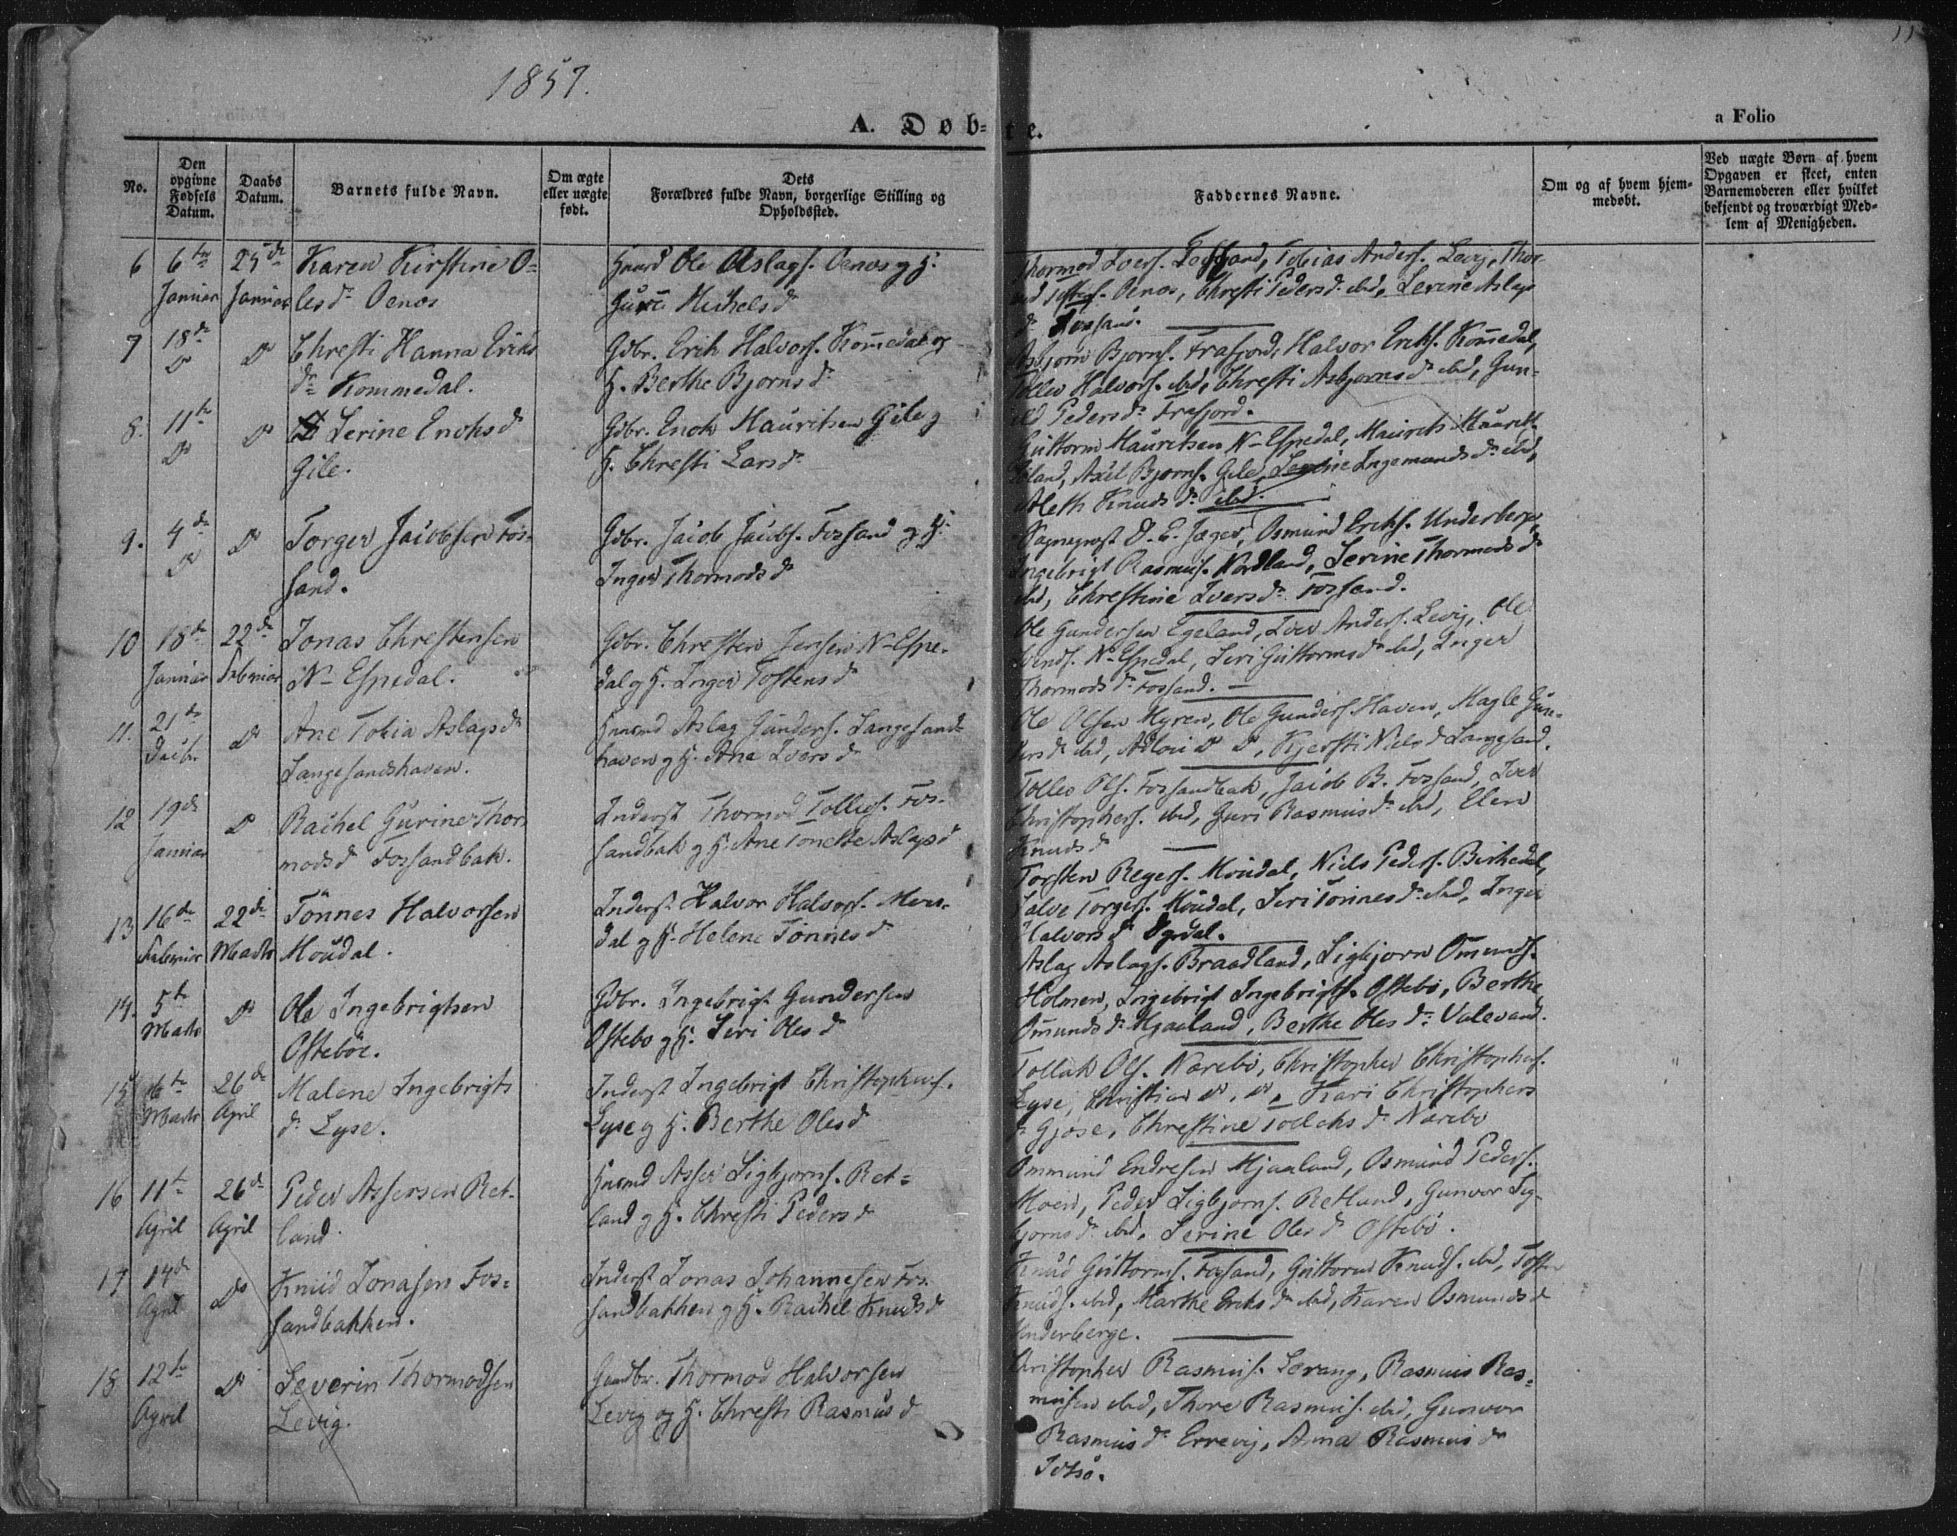 1857.
11
A. Døb=
te.
a Folio
No.
Den
opgivne
Fødsels
Datum.
Daabs
Datum.
Barnets fulde Navn.
Om ægte
eller uægte
født.
Dets
Forældres fulde Navn, borgerlige Stilling og
Opholdssted.
Faddernes Navne.
Om og af hvem hjem-
medøbt.
Ved uægte Børn af hvem
Opgaven er skeet, enten
Barnemoderen eller hvilket
bekjendt og troværdigt Med-
lem af Menigheden.
6 6te 25de Karen Kirstine O=
Januar Januar lesd. Oenos
Huusmd Ole Aslags. Oenos og H.
Guri Michelsd
Thormod Ivers. Fossand, Tobias Anders. Levig, Thor
Oenos, Chresti Pedersd. ibid, Serine Aslags
d. Fossand.
7 18de Do Chresti Hanna Eriks
Do d. Kommedal.
Gdbr. Erik Halvors. Komedal og
H. Berthe Bjørnsd
Asbjørn Bjørns. Frafjord, Halvor Eriks. Komedal,
Tollev Halvors. ibid, Chresti Asbjørnsd. ibid, Gun-
ild Pedersd. Frafjord.
8. 11te Do Serine Enoksd
Do Gile.
Gdbr. Enok Mauritsen Gile og
H. Chresti Larsd
Guttorm Mauritsen N-Espedal, Maurits Maurits.
Axel Bjørns. Gile, Serine Ingemundsd. ibid,
Aleth Knudsd. ibid.
9. 4de Do Torger Jacobsen Fos-
Do sand.
Gdbr. Jacob Jacobs. Fossand og H.
Inger Thormodsd
Sognepræst O. E. Jæger, Osmund Eriks. Underberge,
Ingebrigt Rasmus. Nordland, Serine Thormodsd
ibid, Christine Iversd. Fossand.
10 18de 22de Jonas Chrestensen
Januar Februar N-Espedal.
Gdbr. Chresten Jensen N-Espe-
dal og H. Inger Tostensd
Ole Gundersen Egeland, Iver Anders. Levig, Ole
Svends. N-Espedal, Seri Guttormsd. ibid, Inger
Thormodsd. Fossand.
11. 21de Do Ane Tobia Aslagsd
Decbr. Langesandshaven.
Huusmd Aslag Gunders. Langesand-
haven og H. Ane Iversd
Ole Olsen Myren, Ole Gunders. Haven, Magle Gun-
dersd. ibid, Do Do, Kjersti Nielsd Langesand.
12 19de Do Rachel Gurine Thor
Januar modsd Fossandbak.
Inderst Thormod Tollefs. Fos-
sandbak og H. Ane Tonette Aslagsd
Tollev Ols. Fossandbak, Jacob B. Fossand, Iver
Christophers. ibid, Guri Rasmusd. ibid, Elen
Knudsd
13 16de 22de Tønnes Halvorsen
Februar Marts Moudal.
Inderst Halvor Halvors. Mou-
dal og H. Helene Tønnesd
Torsten Reiers. Moudal, Niels Peders. Birkedal,
Salve Torgers. Moudal, Seri Tønnesd. ibid, Inger
Halvorsd Øgdal.
14. 5te Do Ole Ingebrigtsen
Marts Østebøe.
Gdbr. Ingebrigt Gundersen
Østebø og H. Seri Olesd
Aslag Aslags. Braadland, Sigbjørn Omunds.
Holmen, Ingebrigt Ingebrigts. Østebø, Berthe
Omundsd. Mjaaland, Berthe Olesd. Valevand.
15 6te 26de Malene Ingebrigts
Marts April d. Lyse.
Inderst Ingebrigt Christophers.
Lyse og H. Berthe Olesd
Tollak Ols. Nærebø, Christopher Christophers.
Lyse, Christian do, do, Kari Christophers
d. Gjøse, Christine Tollaksd. Nærebø
16 11te 26de Peder Assersen Ret-
April April land.
Huusmd Asser Sigbjørns. Ret=
land og H. Chresti Pedersd
Ommund Endresen Mjaaland, Osmund Peders.
Moen, Peder Sigbjørns. Retland, Gunvor Sig-
bjørnsd. ibid, Serine Olesd Østebø.
17 14de Do Knud Jonasen Fos=
April sandbakken.
Inderst Jonas Johannesen Fos-
sandbakken og H. Rachel Knudsd
Knud Guttorms. Fossand, Guttorm Knuds. ibid, Tosten
Knuds. ibid, Marthe Eriksd ibid, Karen Osmundsd
Underberge.
18 12te Do Severin Thormodsen
April Levig.
Gaardbr. Thormod Halvorsen
Levig og H. Chresti Rasmusd
Christopher Rasmus. Lerang, Rasmus Ras=
musen ibid, Thore Rasmus. ibid, Gunvor
Rasmusd. Errevig, Anna Rasmusd
Idsø.